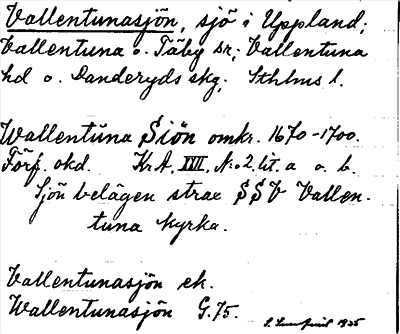 Vallentunasjön, sjö i Uppland;
Vallentuna o. Täby snr; Vallentuna
hd o. Danderyds skg; Sthlms l.
Wallentuna Siön omkr. 1670-1700.
Förf. okd. Kr.A. XVII, N:o 2. lit. a o. b.
Sjön belägen strax SSV Vallen-
tuna kyrka.
Vallentunasjön ek.
Wallentunasjön G.75.
1935